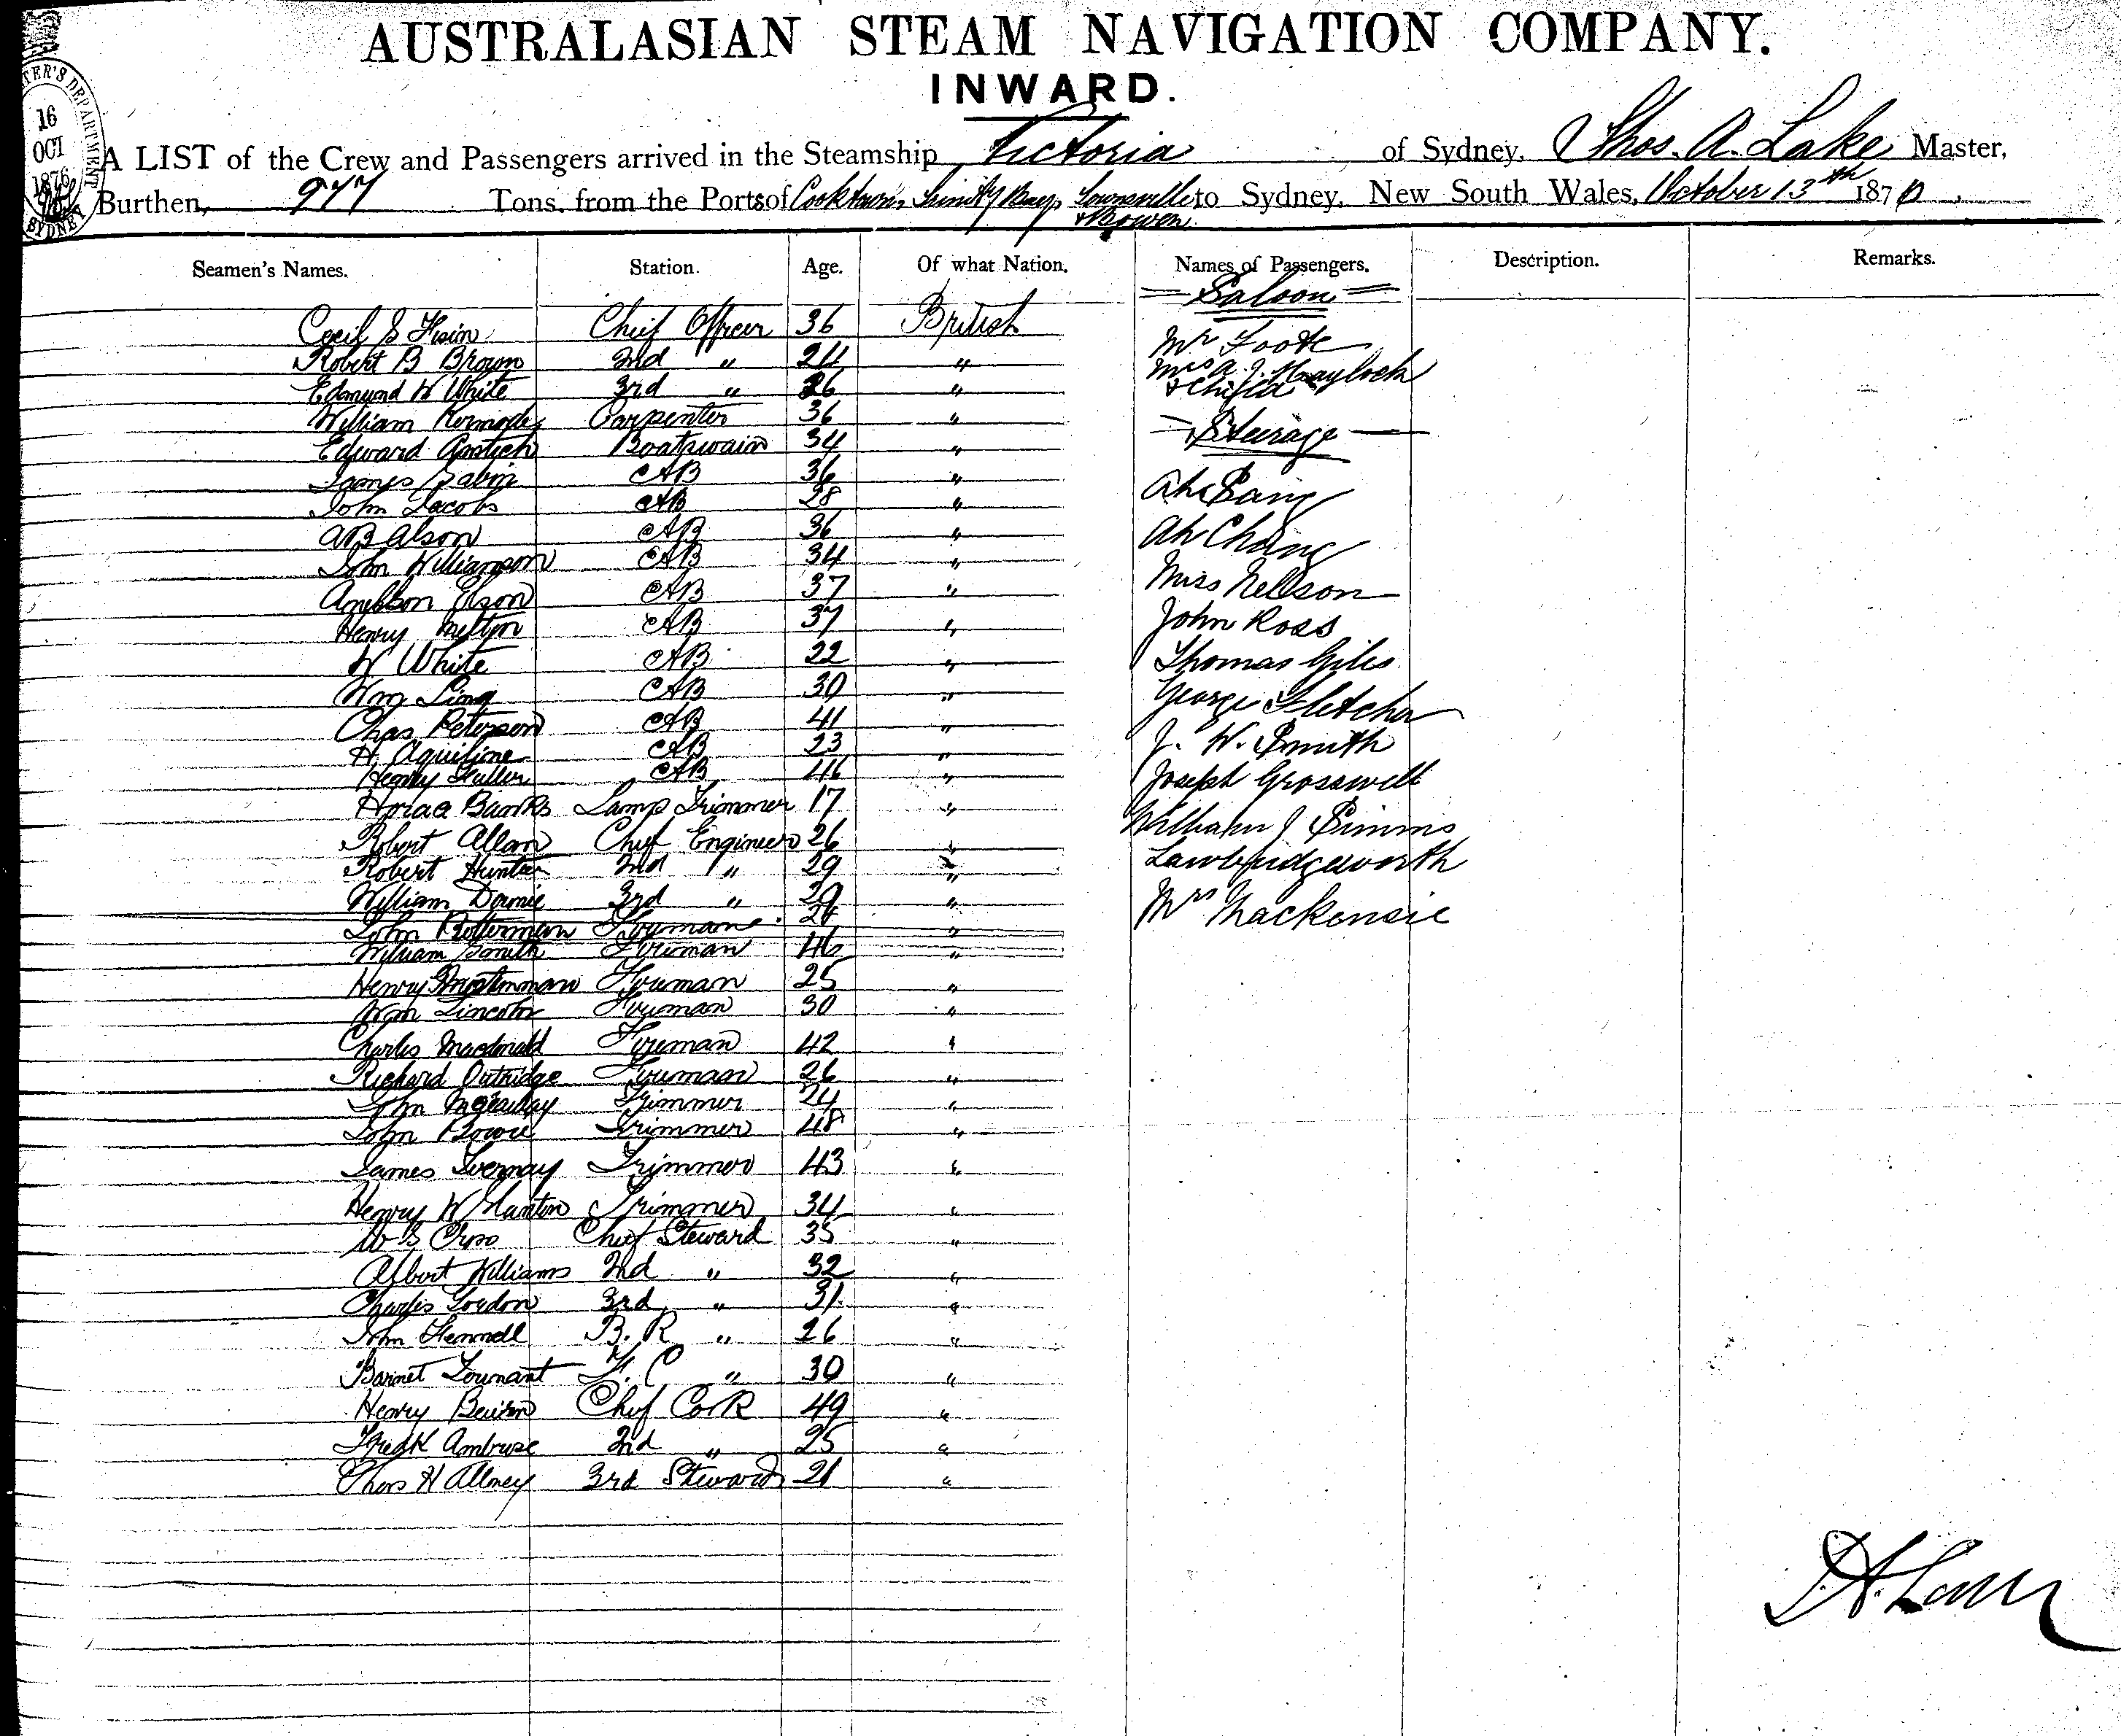 AUSTRALASIAN STEAM NAVIGATION COMPANY.
INWARD.
TER'S DEPARTMENT
16
OCT
1876
SYDNEY
A LIST of the Crew and Passengers arrived in the Steamship Victoria of Sydney, Thos. A. Lake Master,
Burthen, 977 Tons, from the Ports of Cooktown, Trinity Bay, Townsville to Sydney, New South Wales, October 13th 1876
& Bowen
Seamen's Names. Station. Age. Of what Nation. Names of Passengers. Description. Remarks.
Saloon
Cecil S Chief Officer 36 British Mr Foote
Robert B Brown 2nd " 24 " Mrs A. J. Haylock
Edmund W White 3rd " 26 " & Child
William Kermode Carpenter 36 "
Edward Boatswain 34 " Steerage
James Sabin AB 36 "
John Jacobs AB 28 " Ah Sang
AB Olson AB 36 " Ah Chong
John Williamson AB 34 "
AB 37 " Miss Nellson
Henry AB 37 " John Ross
W White AB 22 " Thomas Giles
Wm AB 30 " George Fletcher
Chas Peterson AB 41 "
H Aquiline AB 23 " J. W. Smith
Henry AB 46 " Joseph Grosswell
Horace Banks Lamp Trimmer 17 "
Robert Allan Chief Engineer 26 " William J Simms
Robert Hunter 2nd " 29 " Lawbridgeworth
William 3rd " 29 " Mrs Mackensie
John Fireman "
William Smith Fireman 46 "
Henry Fireman 25 "
Wm Lincoln Fireman 30 "
Charles Macdonald Fireman 42 "
Richard Outridge Fireman 26 "
John Trimmer 24 "
John Bowie Trimmer 48 "
James Trimmer 43 "
Henry W Trimmer 34 "
W S Cross Chief Steward 35 "
Albert Williams 2nd " 32 "
Charles 3rd " 31 "
John B. R " 26 "
Barnet F. C " 30 "
Henry Chief Cook 49 "
Fredk Ambrose 2nd " 25 "
Thos H 3rd Steward 21 "